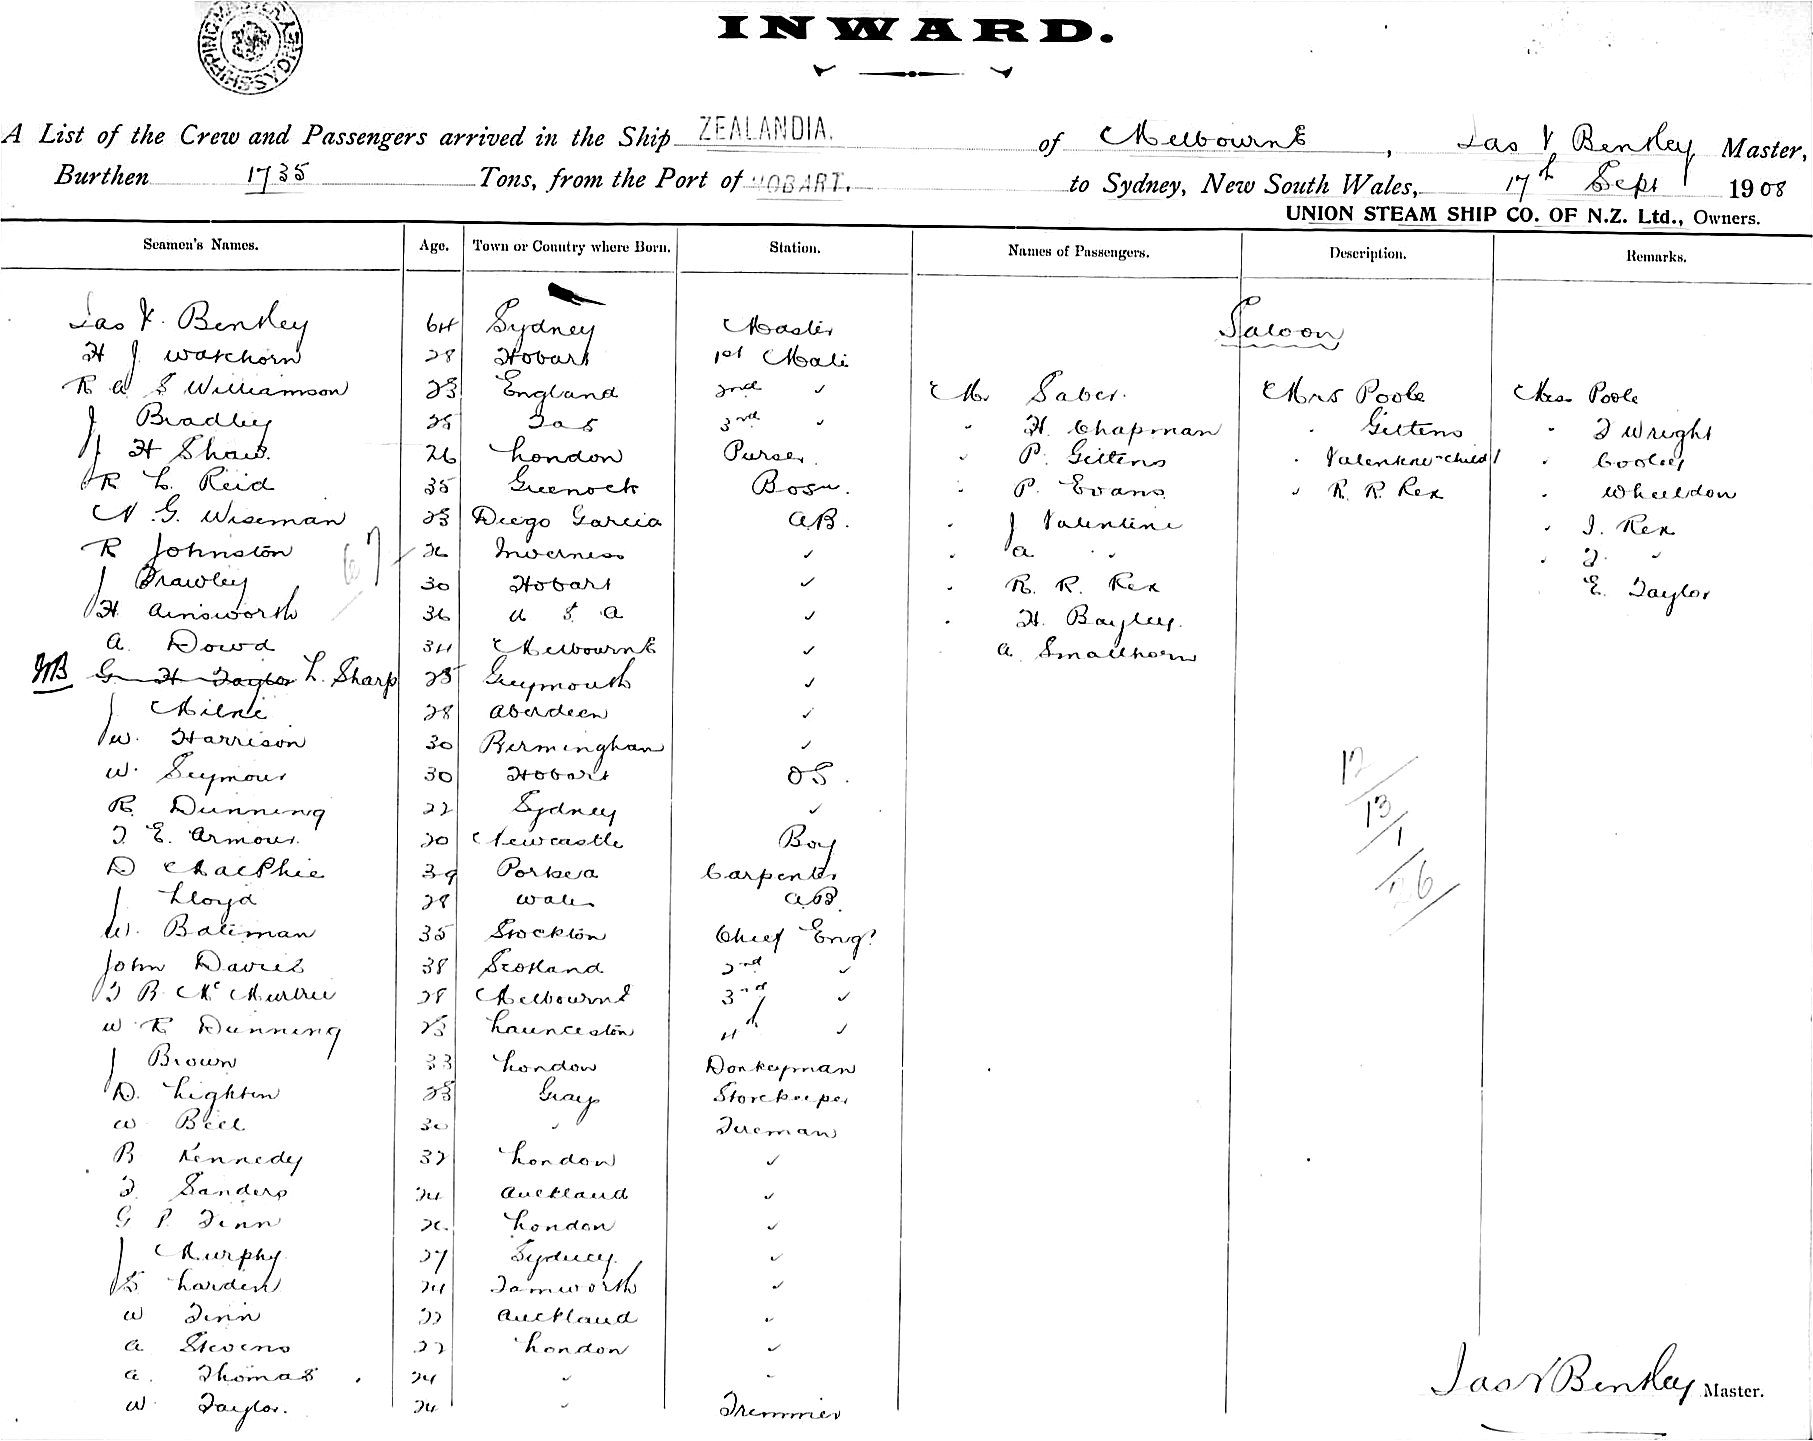 SHIPPING MASTER SYDNEY
INWARD.
A List of the Crew and Passengers arrived in the Ship ZEALANDIA. of Melbourne, Jas V Bentley Master,
Burthen 1735 Tons, from the Port of HOBART. to Sydney, New South Wales, 17th Sept 1908
UNION STEAM SHIP CO. OF N.Z. Ltd., Owners.
Seamen's Names. Age. Town or Country where Born. Station. Names of Passengers. Description. Remarks.
Saloon
Jas V. Bentley 64 Sydney Master
H J Watchorn 28 Hobart 1st Mate
R A S Williamson 23 England 2nd ✓ Mr Saber. Mrs Poole Miss Poole
J Bradley 25 Tas 3rd ✓ " H. Chapman " Gittens " T Wright
J H Shaw. 26 London Purser. " P. Gittens " Valentine-child 1 " Cooley
R L Reid 35 Greenock Bosn. " P. Evans " R. R. Rex " Wheeldon
N. G. Wiseman 23 Diego Garcia AB. " J Valentine " I. Rex
R Johnston 26 Inverness ✓ " A " "
J Brawley 30 Hobart ✓ " R. R. Rex E. Taylor
H Ainsworth 36 U S A ✓ " H. Bayley.
A. Dowd 34 Melbourne ✓ A. Smallhorn
G H Taylor L. Sharp 25 Greymouth ✓
J Milne 28 Aberdeen ✓
W. Harrison 30 Birmingham ✓
W. Seymour 30 Hobart OS.
R. Dunning 22 Sydney ✓
T E. Armour. 20 Newcastle Boy
D MacPhie 39 Portsea Carpenter
J Lloyd 28 Wales AB.
W. Bateman 35 Stockton Chief Engr
John Davies 38 Scotland 2nd ✓
T B. McMurtrie 28 Melbourne 3rd ✓
W R Dunning 23 Launceston 4th ✓
J Brown 33 London Donkeyman
D. Lighten 23 Grays Storekeeper
W Bell 30 " Fireman
B Kennedy 32 London ✓
T. Sanders 24 Auckland ✓
G P. Finn 26 London ✓
J Murphy. 27 Sydney. ✓
S Larden 24 Tamworth ✓
W Finn 22 Auckland ✓
A Stevens 22 London ✓
A. Thomas 24 " "
W Taylor. 24 " Trimmer
12
13
1
26
Jas V Bentley Master.